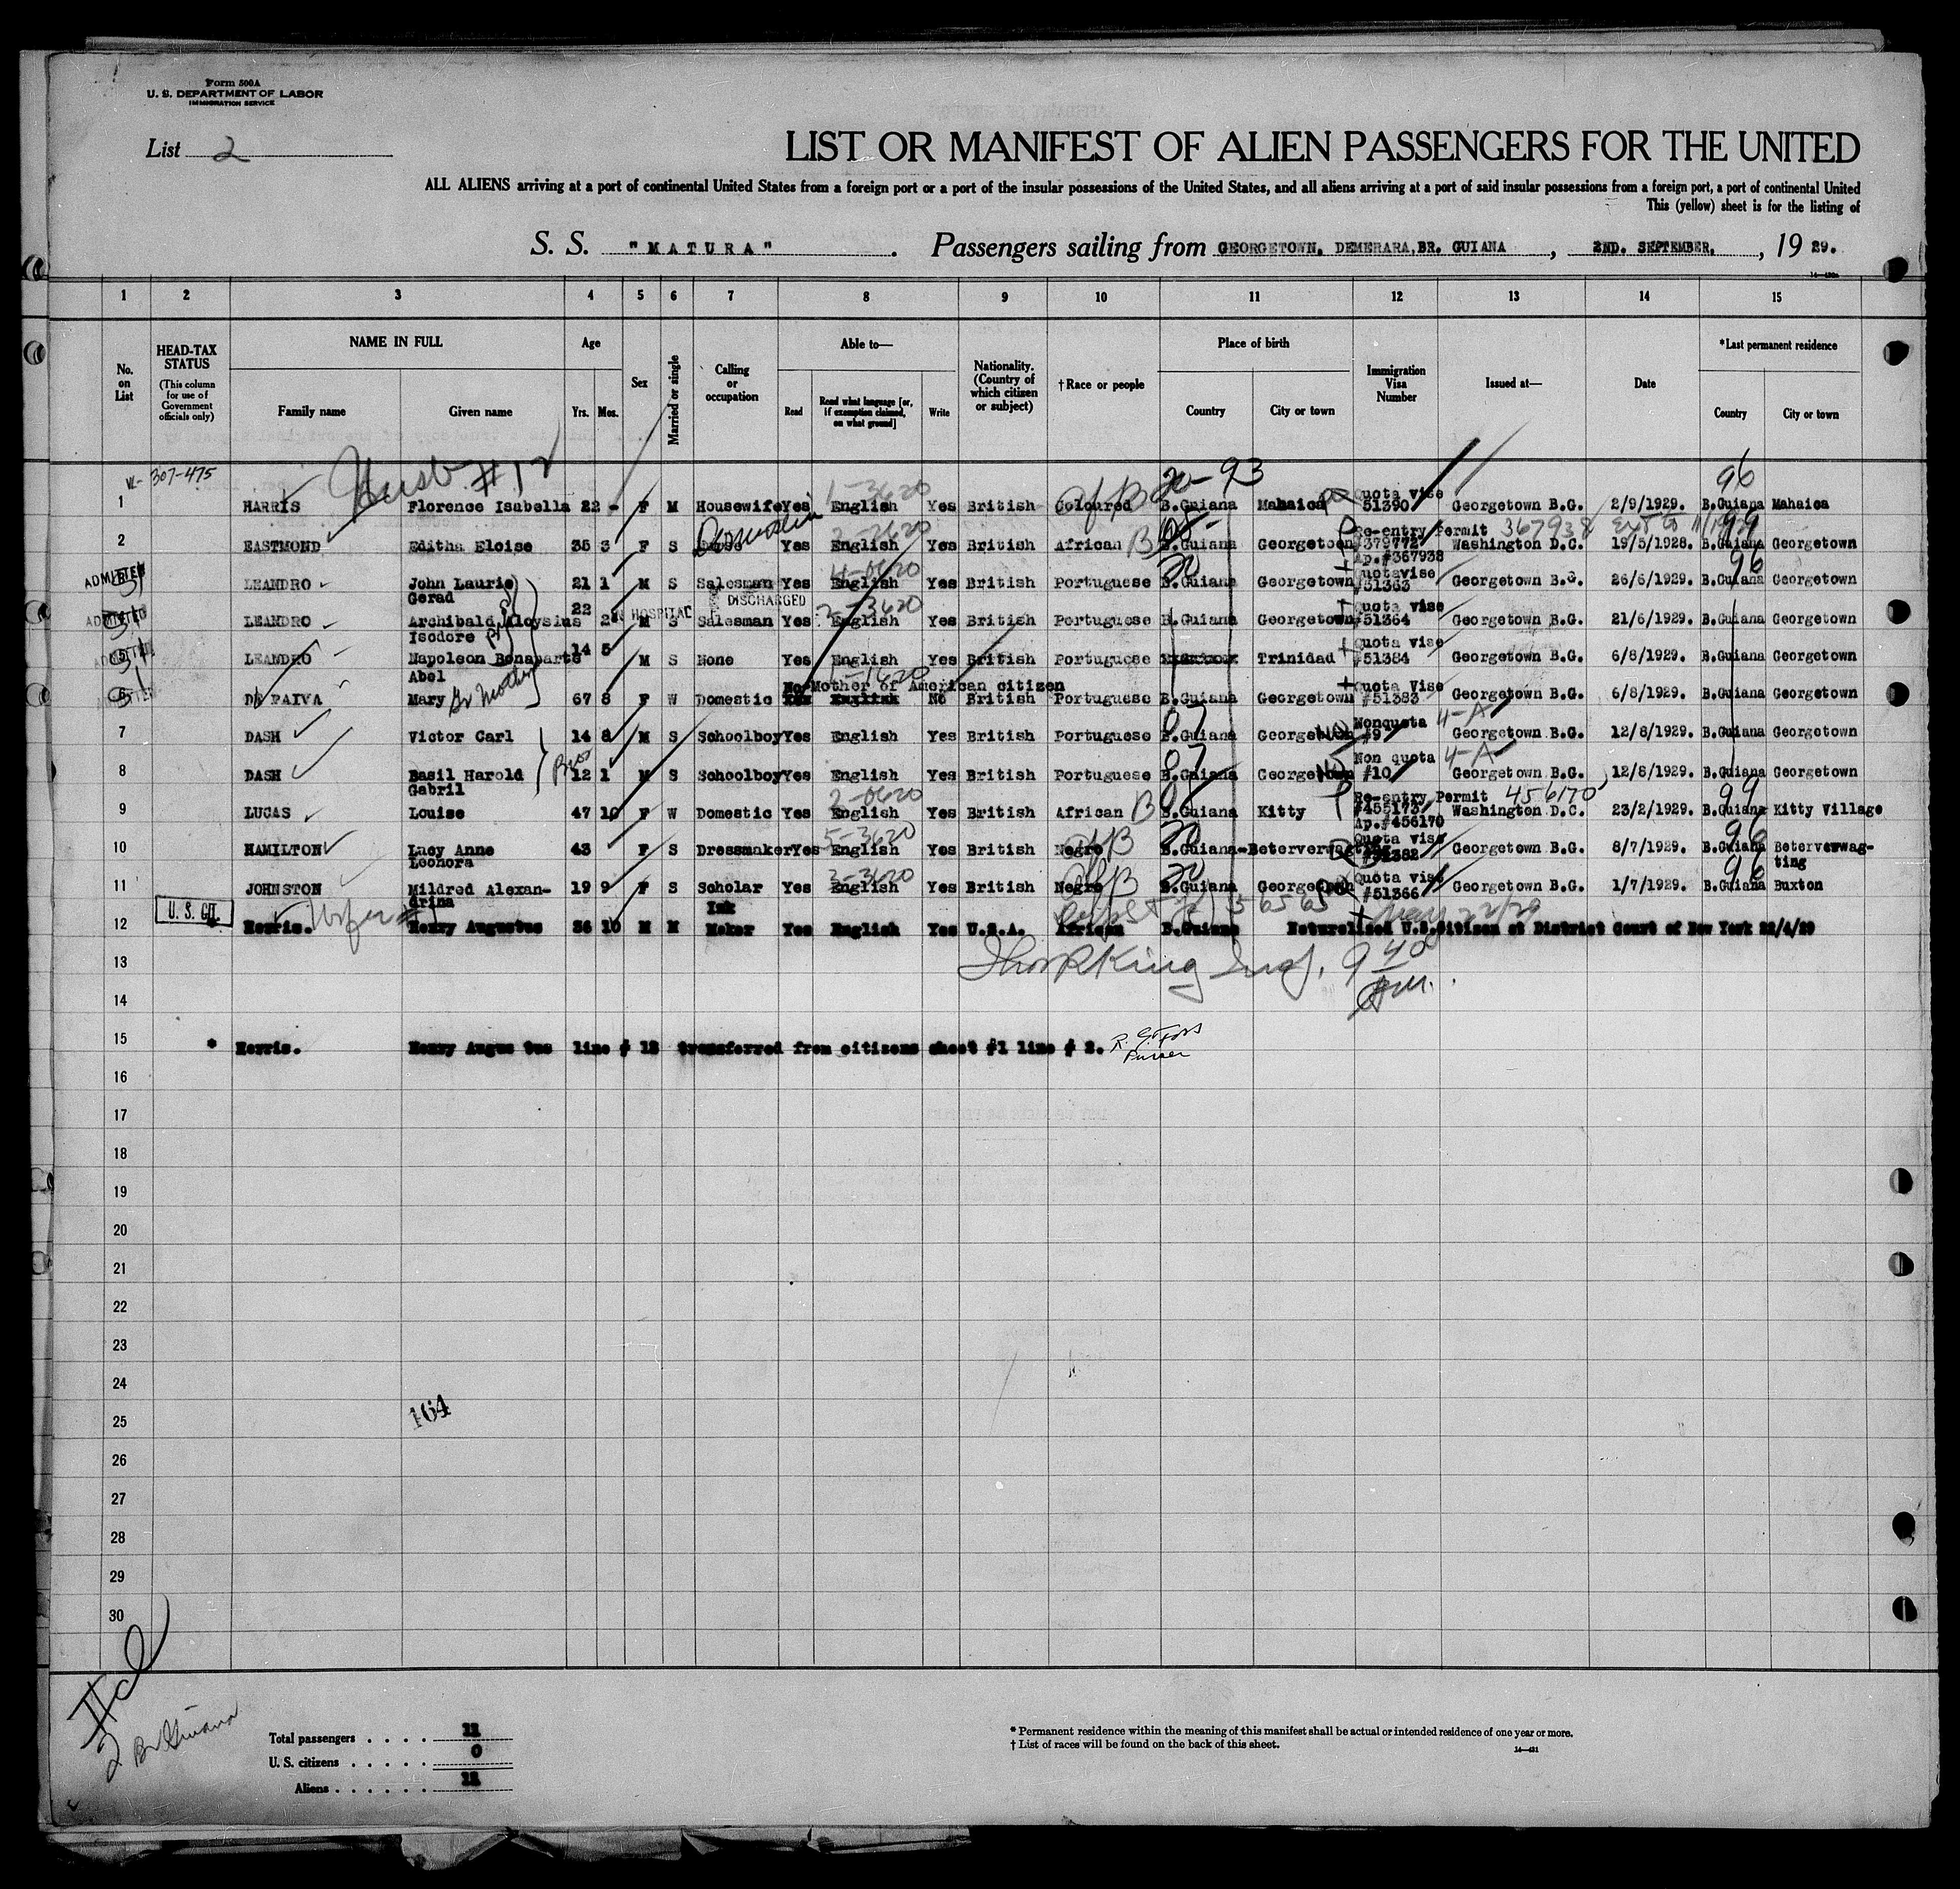 Form 500A
U. S. DEPARTMENT OF LABOR
IMMIGRATION SERVICE
List 2
LIST OR MANIFEST OF ALIEN PASSENGERS FOR THE UNITED
ALL ALIENS arriving at a port of continental United States from a foreign port or a port of the insular possessions of the United States, and all aliens arriving at a port of said insular possessions from a foreign port, a port of continental United
This (yellow) sheet is for the listing of
S. S. "MATURA" . Passengers sailing from GEORGETOWN, DEMERARA, BR. GUIANA , 2ND. SEPTEMBER, , 19 29.
1 2 3 4 5 6 7 8 9 10 11 12 13 14 15
No. on List
HEAD-TAX STATUS
(This column for use of Government officials only)
NAME IN FULL
Family name Given name
Age
Yrs. Mos.
Sex
Married or single
Calling or occupation
Able to—
Read Read what language [or, if exemption claimed, on what ground] Write
Nationality. (Country of which citizen or subject)
† Race or people
Place of birth
Country City or town
Immigration Visa Number
Issued at—
Date
*Last permanent residence
Country City or town
307-475 Husb. #12 1-3620 20-93 96
1 HARRIS Florence Isabella 22 - F M Housewife Yes English Yes British Coloured B.Guiana Mahaica Quota vise 51390 Georgetown B.G. 2/9/1929. B.Guiana Mahaica
2 EASTMOND Editha Eloise 35 3 F S Domestic Yes English Yes British African B B.Guiana Georgetown Re-entry Permit 367938 #379772 Ap.#367938 Washington D.C. 19/5/1928. B.Guiana Georgetown
ADMITTED
3 LEANDRO John Laurie Gerad 21 1 M S Salesman Yes English Yes British Portuguese B.Guiana Georgetown Quota vise #51363 Georgetown B.G. 26/6/1929. B.Guiana Georgetown
ADMITTED IN HOSPITAL DISCHARGED
4 LEANDRO Archibald Aloysius Isodore 22 2 M S Salesman Yes English Yes British Portuguese B.Guiana Georgetown Quota vise #51364 Georgetown B.G. 21/6/1929. B.Guiana Georgetown
ADMITTED
5 LEANDRO Napoleon Bonaparte Abel 14 5 M S None Yes English Yes British Portuguese Trinidad Quota vise #51384 Georgetown B.G. 6/8/1929. B.Guiana Georgetown
No-Mother of American citizen
6 DE PAIVA Mary Gr Mother 67 8 F W Domestic Yes English No British Portuguese B.Guiana Georgetown Quota Vise #51383 Georgetown B.G. 6/8/1929. B.Guiana Georgetown
7 DASH Victor Carl 14 8 M S Schoolboy Yes English Yes British Portuguese B.Guiana Georgetown Nonquota #9 4-A Georgetown B.G. 12/8/1929. B.Guiana Georgetown
8 DASH Basil Harold Gabril Bros 12 1 M S Schoolboy Yes English Yes British Portuguese B.Guiana Georgetown Non quota #10 4-A Georgetown B.G. 12/8/1929. B.Guiana Georgetown
9 LUCAS Louise 47 10 F W Domestic Yes English Yes British African B B.Guiana Kitty Re-entry Permit 456170 #455173 Ap.#456170 Washington D.C. 23/2/1929. B.Guiana Kitty Village
10 HAMILTON Lucy Anne Leonora 43 F S Dressmaker Yes English Yes British Negro B.Guiana-Beterverwagting Quota vise #51382 Georgetown B.G. 8/7/1929. B.Guiana Beterverwagting
11 JOHNSTON Mildred Alexandrina 19 9 F S Scholar Yes English Yes British Negro B.Guiana Georgetown Quota vise #51366 Georgetown B.G. 1/7/1929. B.Guiana Buxton
U. S. CIT.
12 * Harris. Wife #1 Henry Augustus 36 10 M M Ink Maker Yes English Yes U.S.A. African B.Guiana Naturalised U.S.Citizen at District Court of New York 22/4/29
13 9 40
14 AM.
15 * Harris. Henry Augus tus line # 12 transferred from citizens sheet #1 line # 2. Purser
16
17
18
19
20
21
22
23
24
164
25
26
27
28
29
30
2 Br Guiana
Total passengers . . . . 11
U. S. citizens . . . . . 0
Aliens . . . . . . 11
* Permanent residence within the meaning of this manifest shall be actual or intended residence of one year or more.
† List of races will be found on the back of this sheet.
14—431